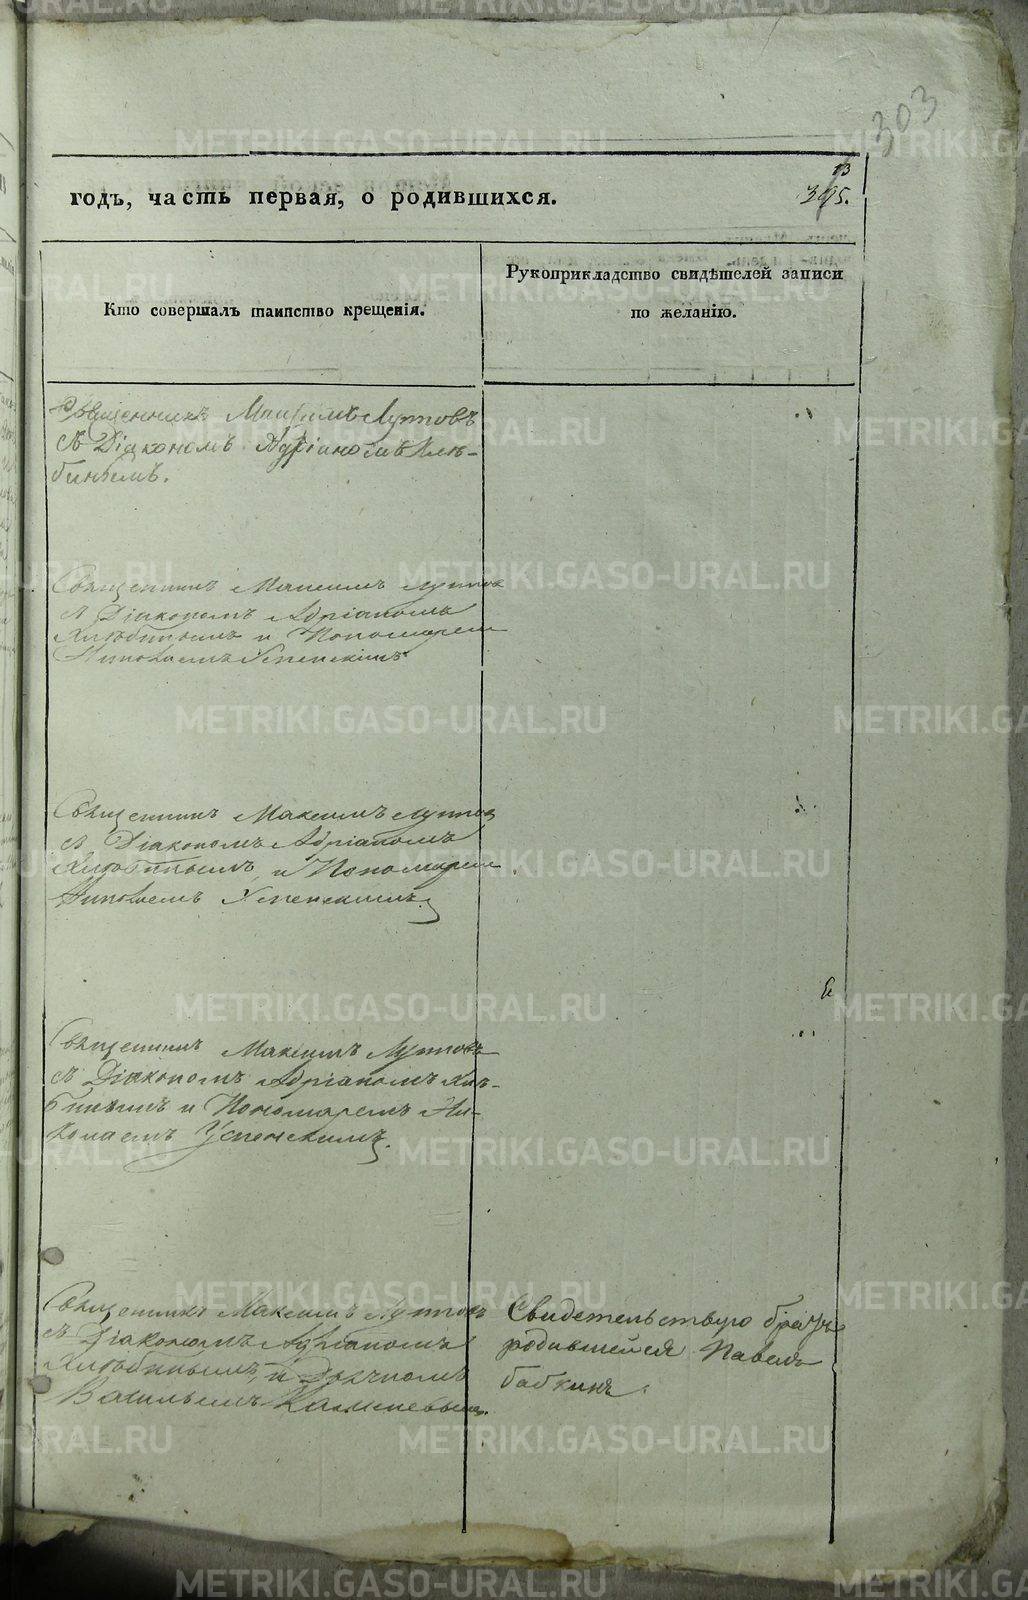 303
13
395.
годъ, часть первая, о родившихся.
Кто совершалъ таинство крещенія.
Рукоприкладство свидѣтелей записи
по желанію.
Священникъ Максимъ Луптовъ
съ Діакономъ Адріаномъ Хлѣ-
бинымъ.
Священникъ Максимъ Луптов
съ Діакономъ Адріаномъ
Хлѣбинымъ и Пономарем
Николаемъ Успенскимъ
Священникъ Максимъ Луптов
съ Діакономъ Адріаномъ
Хлѣбинымъ, и Пономарем
Николаемъ Успенскимъ.
Священникъ Максимъ Луптовъ
съ Діакономъ Адріаномъ Хлѣ-
бинымъ и Пономаремъ Ни-
колаемъ Успенскимъ.
Священникъ Максимъ Луптовъ
съ Діакономъ Адріаномъ
Хлѣбинымъ, и Дьячкомъ
Васильемъ
Свидетельствую братъ
родившейся Павелъ
бабкинъ.
METRIKI.GASO-URAL.RU